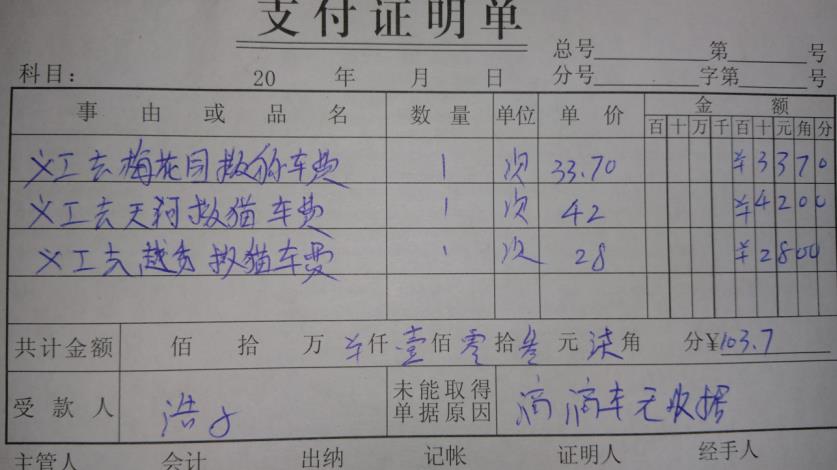 支付证明单
总号 第 号
科目： 20 年 月 日 分号 字第 号
事由或品名 数量 单位 单价 金额
百十万千百十元角分
义工去梅花园救猫车费 1 次 33.70 ¥3370
义工去天河救猫车费 1 次 42 ¥4200
义工去越秀救猫车费 1 次 28 ¥2800
共计金额 佰 拾 万 ¥仟壹佰零拾叁元柒角 分¥103.7
受款人 浩 未能取得单据原因 滴滴车无收据
主管人 会计 出纳 记帐 证明人 经手人